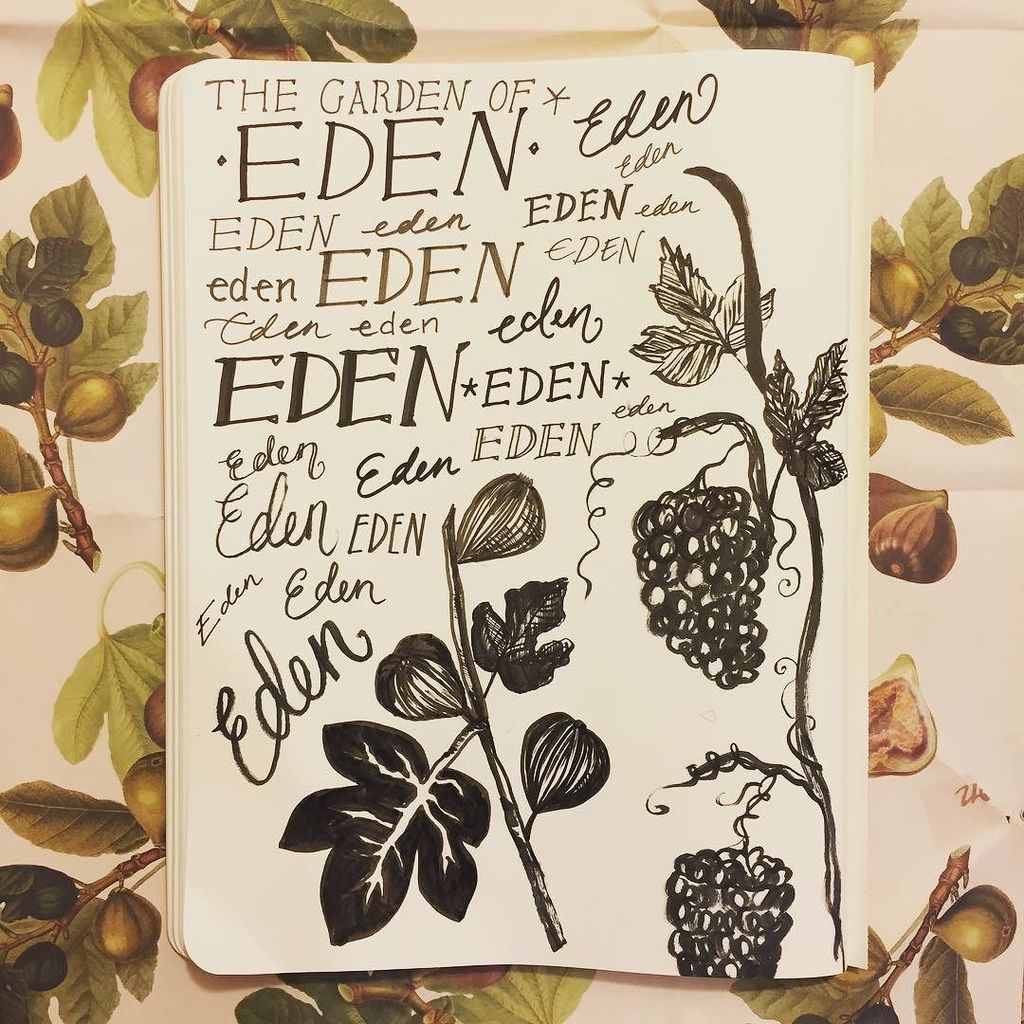 THE GARDEN OF
EDEN
Eden
eden
EDEN eden
EDEN eden
EDEN
eden EDEN
Eden eden
eden
EDEN *EDEN*
eden
Eden Eden EDEN
Eden EDEN
Eden Eden
Eden